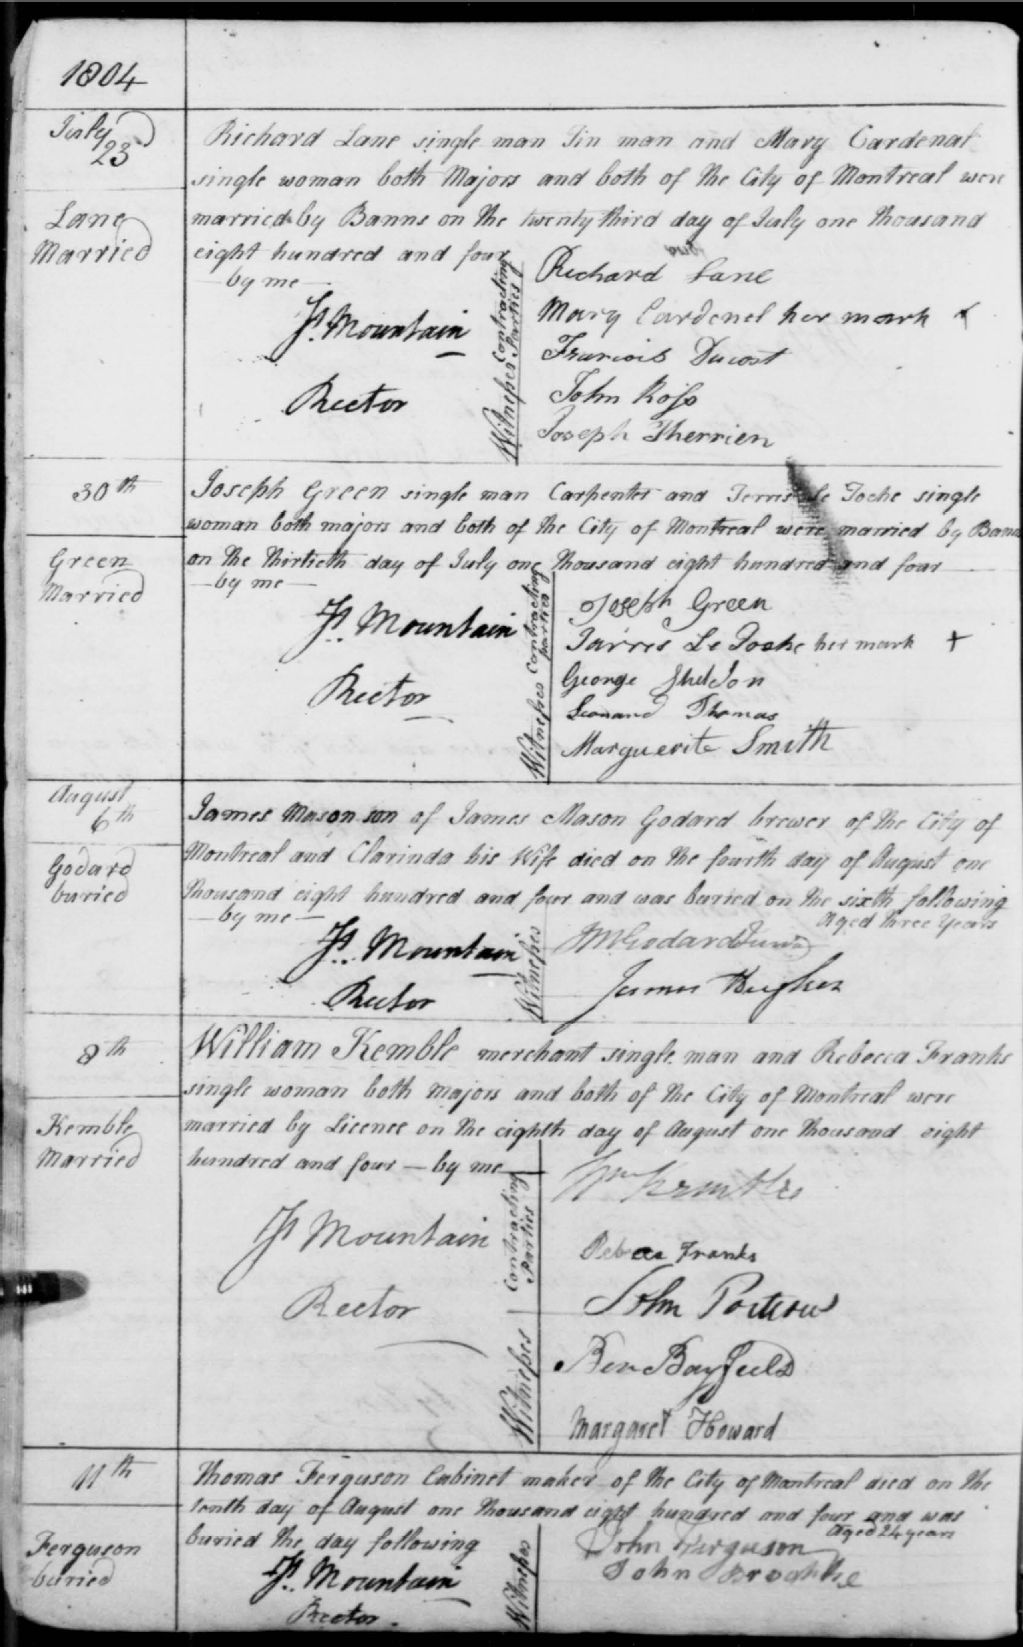 1804
July
23
Lane
Married
Richard Lane single man Tin man and Mary Cardenal
single woman both Majors and both of the City of Montreal were
married by Banns on the twenty third day of July one thousand
eight hundred and four
by me
Js. Mountain
Rector
Contracting
Parties
Witnesses
Richard Lane
Mary Cardenel her mark x
Francois Ducost
John Ross
Joseph Therrien
30th
Green
Married
Joseph Green single man Carpenter and Le Toche single
woman both majors and both of the City of Montreal were married by Banns
on the thirtieth day of July one thousand eight hundred and four
by me
Js. Mountain
Rector
Contracting
parties
Witnesses
Joseph Green
Tarres Le Toche her mark +
George Sheldon
Leonard Thomas
Marguerite Smith
August
6th
Godard
buried
James Mason son of James Mason Godard brewer of the City of
Montreal and Clarinda his Wife died on the fourth day of August one
thousand eight hundred and four and was buried on the sixth following
by me
aged three Years
Js. Mountain
Rector
Witnesses
JMGodard
James Hughes
8th
Kemble
Married
William Kemble merchant single man and Rebecca Franks
single woman both majors and both of the City of Montreal were
married by Licence on the eighth day of August one thousand eight
hundred and four — by me
Js Mountain
Rector
Contracting
Parties
Witnesses
Wm Kemble
Rebecca Franks
John Porteous
Ben Bayfield
Margaret Howard
11th
Ferguson
buried
Thomas Ferguson Cabinet maker of the City of Montreal died on the
tenth day of August one thousand eight hundred and four and was
aged 24 years
buried the day following
Js. Mountain
Rector
Witnesses
John Ferguson
John